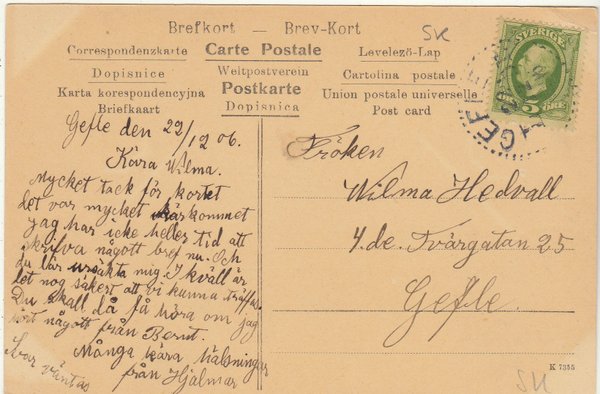 Brefkort — Brev-Kort
SK
Correspondenzkarte Carte Postale Levelező-Lap
Dopisnice Weltpostverein Cartolina postale
Karta korespondencyjna Postkarte Union postale universelle
Briefkaart Dopisnica Post card
SVERIGE
5 ÖRE
GEFLE
Gefle den 22/12 06.
Kära Wilma.
Mycket tack för kortet
det var mycket kärkommet
jag har icke heller tid att
skrifva något bref nu. Och
du får ursäkta mig. I kväll är
det nog säkert att vi kunna träffas.
Du skall då få höra om jag
hört något från Bernt.
Många kära hälsningar
från Hjalmar
Svar väntas
Fröken
Wilma Hedvall
4.de. Tvärgatan 25
Gefle.
K 7355
SK